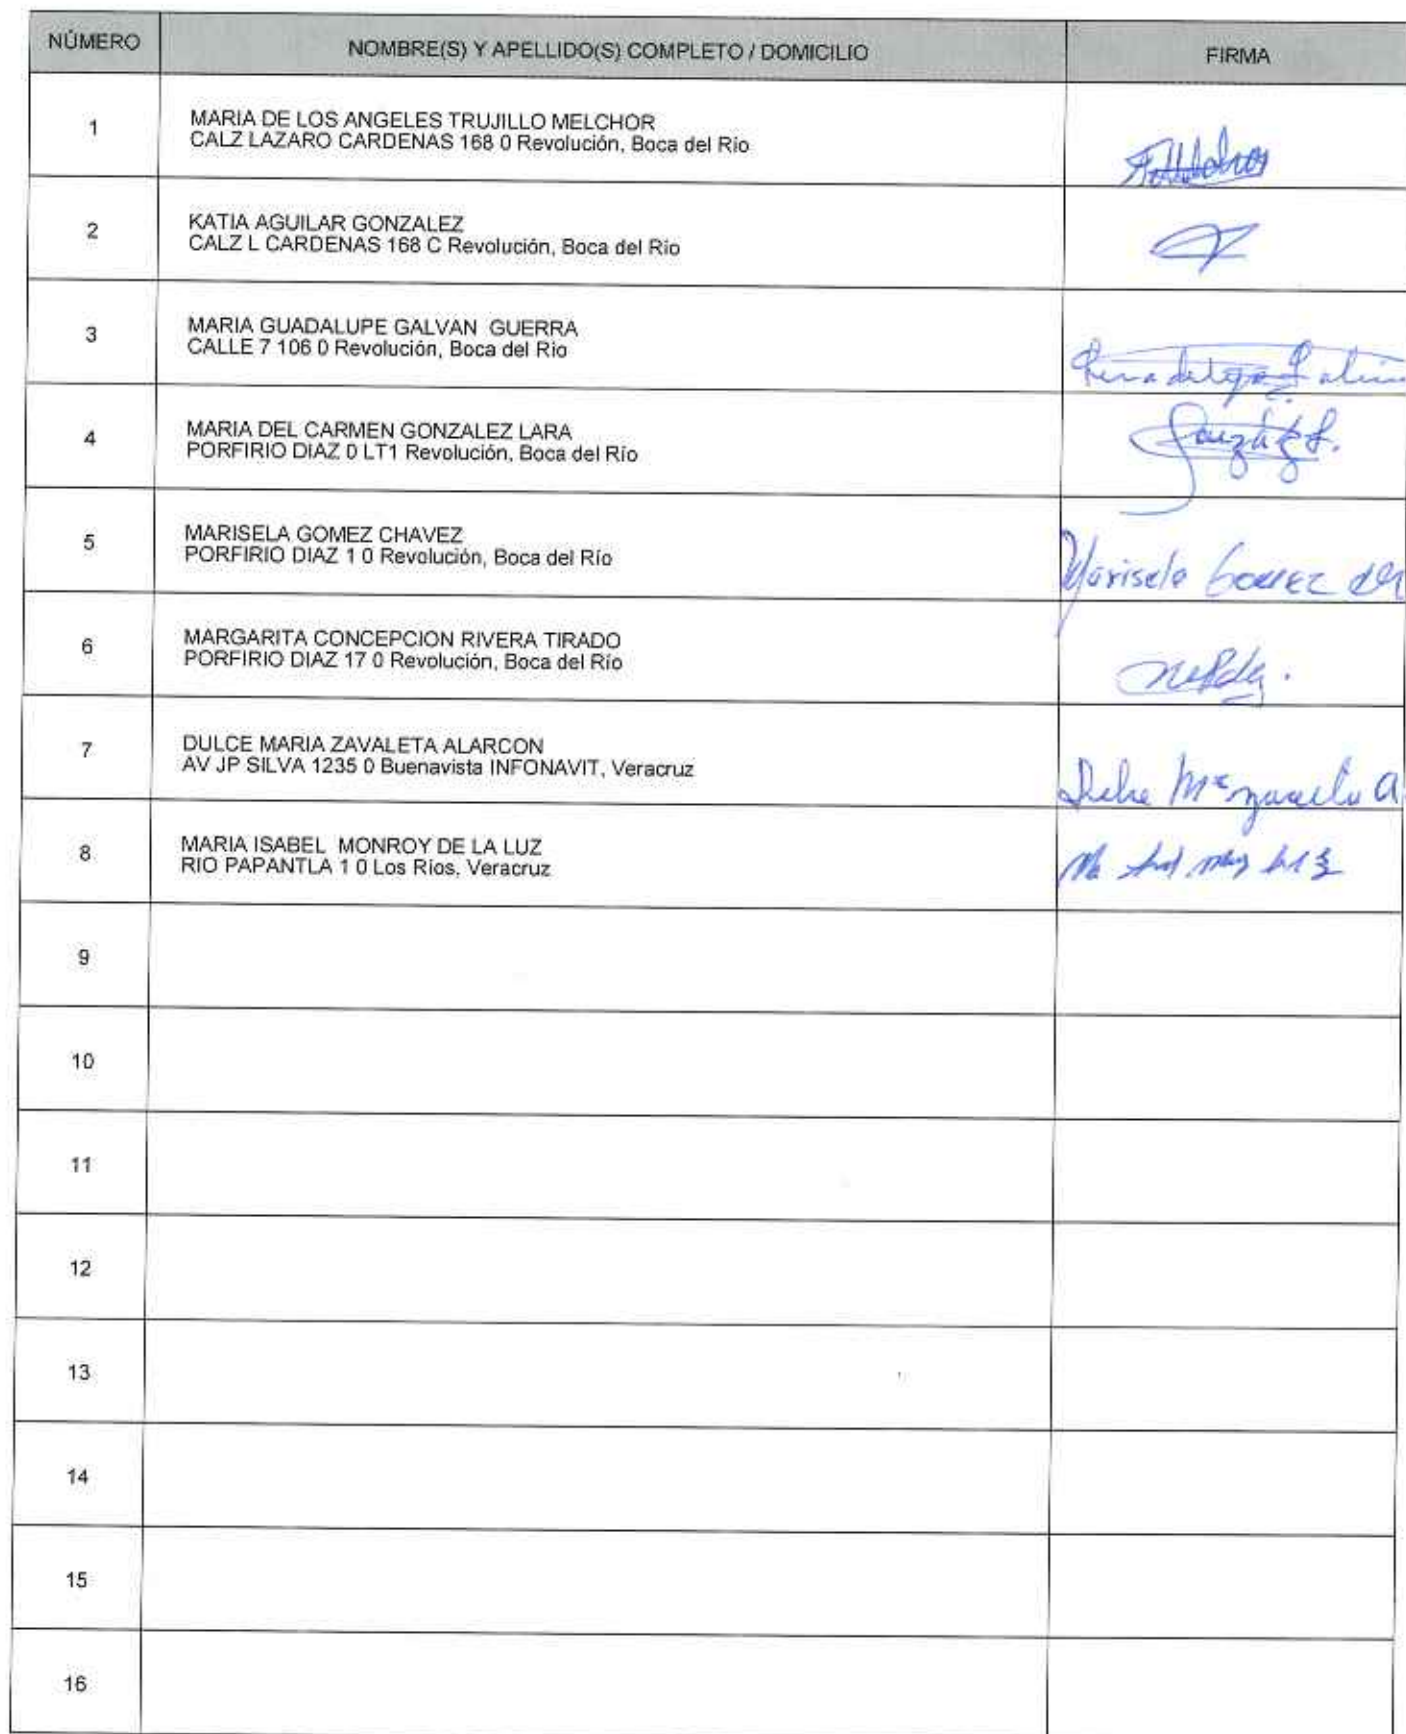 NÚMERO
NOMBRE(S) Y APELLIDO(S) COMPLETO / DOMICILIO
FIRMA
1
MARIA DE LOS ANGELES TRUJILLO MELCHOR
CALZ LAZARO CARDENAS 168 0 Revolución, Boca del Río
2
KATIA AGUILAR GONZALEZ
CALZ L CARDENAS 168 C Revolución, Boca del Río
3
MARIA GUADALUPE GALVAN GUERRA
CALLE 7 106 0 Revolución, Boca del Río
4
MARIA DEL CARMEN GONZALEZ LARA
PORFIRIO DIAZ 0 LT1 Revolución, Boca del Río
5
MARISELA GOMEZ CHAVEZ
PORFIRIO DIAZ 1 0 Revolución, Boca del Río
Marisela Gomez
6
MARGARITA CONCEPCION RIVERA TIRADO
PORFIRIO DIAZ 17 0 Revolución, Boca del Río
7
DULCE MARIA ZAVALETA ALARCON
AV JP SILVA 1235 0 Buenavista INFONAVIT, Veracruz
8
MARIA ISABEL MONROY DE LA LUZ
RIO PAPANTLA 1 0 Los Ríos, Veracruz
9
10
11
12
13
14
15
16